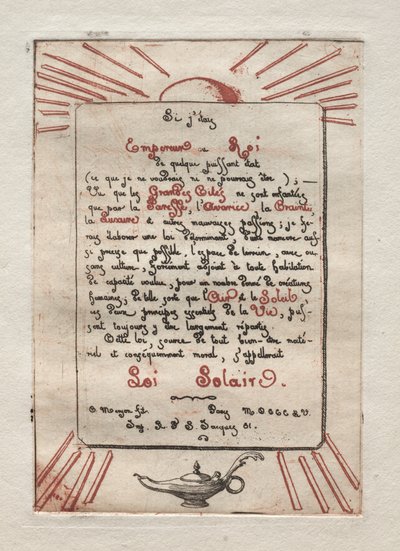 Si j'étais
Empereur ou Roi
de quelque puissant état
(ce que je ne voudrais ni ne pourrais être); —
Vu que les Grandes Cités ne sont enfantées
que par la Paresse, l'Avarice, la Crainte,
la Luxure et autres mauvaises passions; je fe-
rais élaborer une loi déterminant, d'une manière aus-
si précise que possible, l'espace de terrain, avec ou
sans culture, forcément adjoint à toute habitation
de capacité voulue, pour un nombre donné de créatures
humaines; de telle sorte que l'Air et le Soleil
ces deux principes essentiels de la Vie, puis-
sent toujours y être largement répartis
Cette loi, source de tout bien-être maté-
riel et conséquemment moral, s'appellerait
Loi Solaire.
C. Meryon ft. Paris MDCCCLV.
Imp. R. S. Jacques